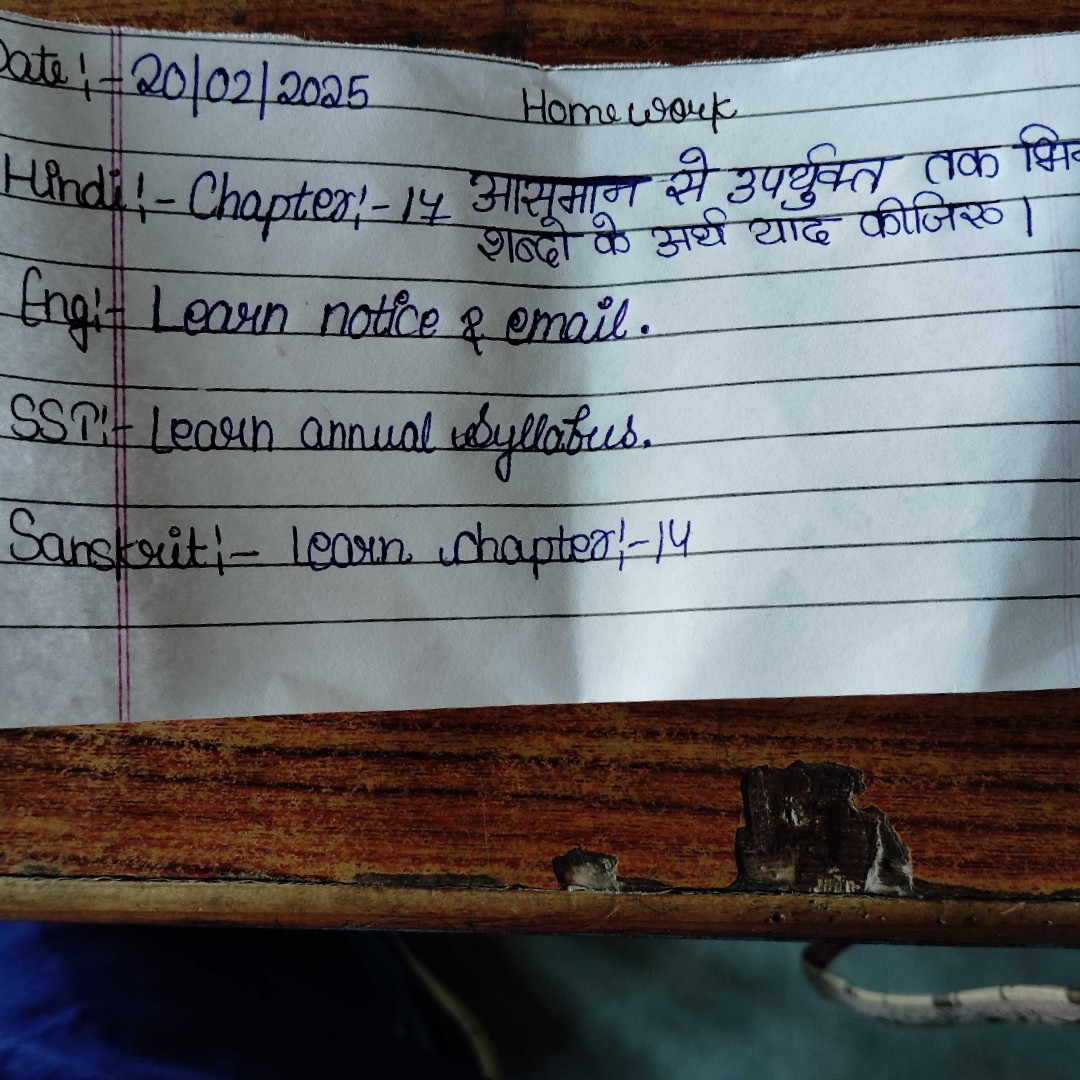 Date:- 20/02/2025
Home work
Hindi:- Chapter:- 14 आसमान से उपर्युक्त तक
शब्दो के अर्थ याद कीजिए।
Eng:- Learn notice & email.
SST:- Learn annual syllabus.
Sanskrit:- learn chapter:-14